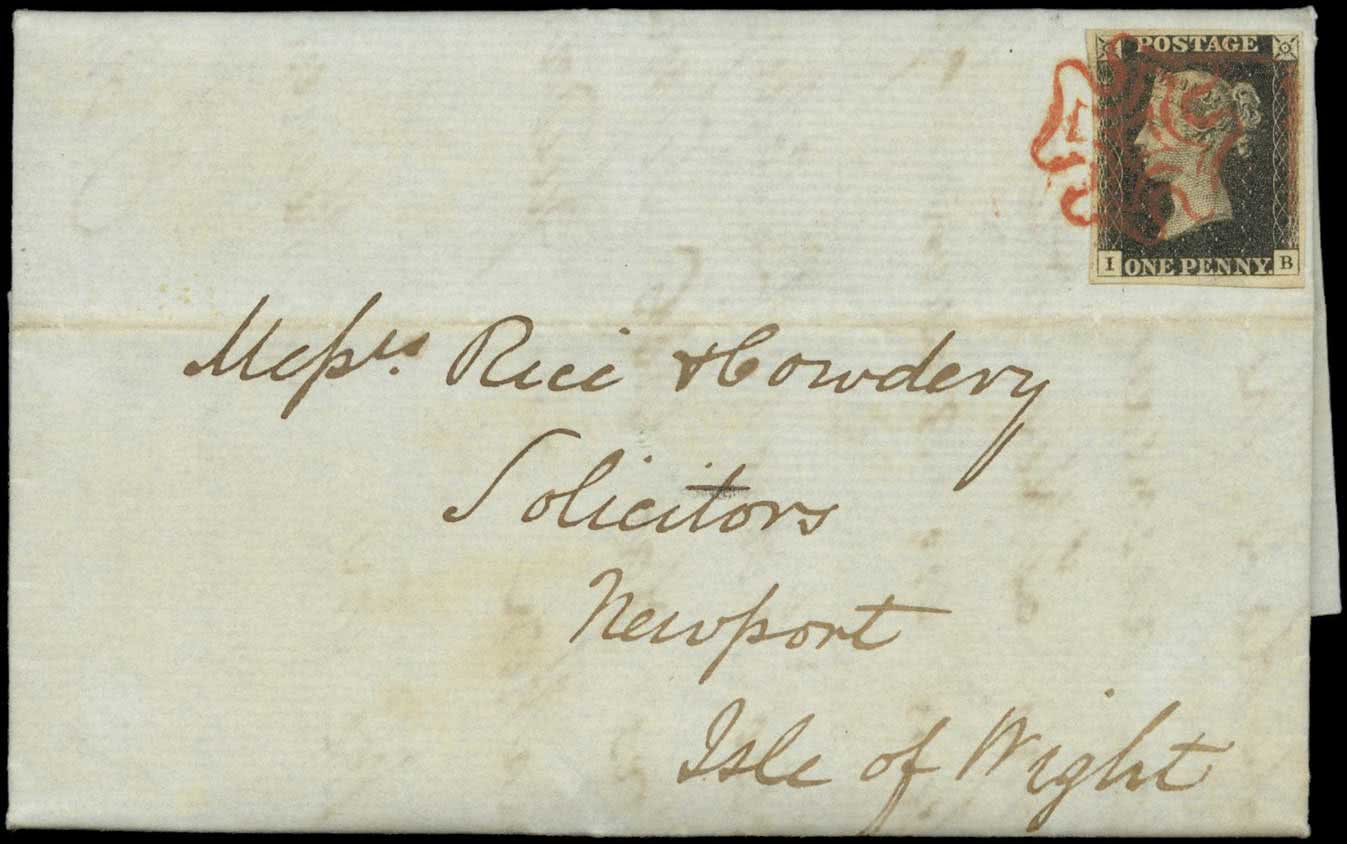 POSTAGE
I ONE PENNY. B
Messrs. Rice & Cowdery
Solicitors
Newport
Isle of Wight